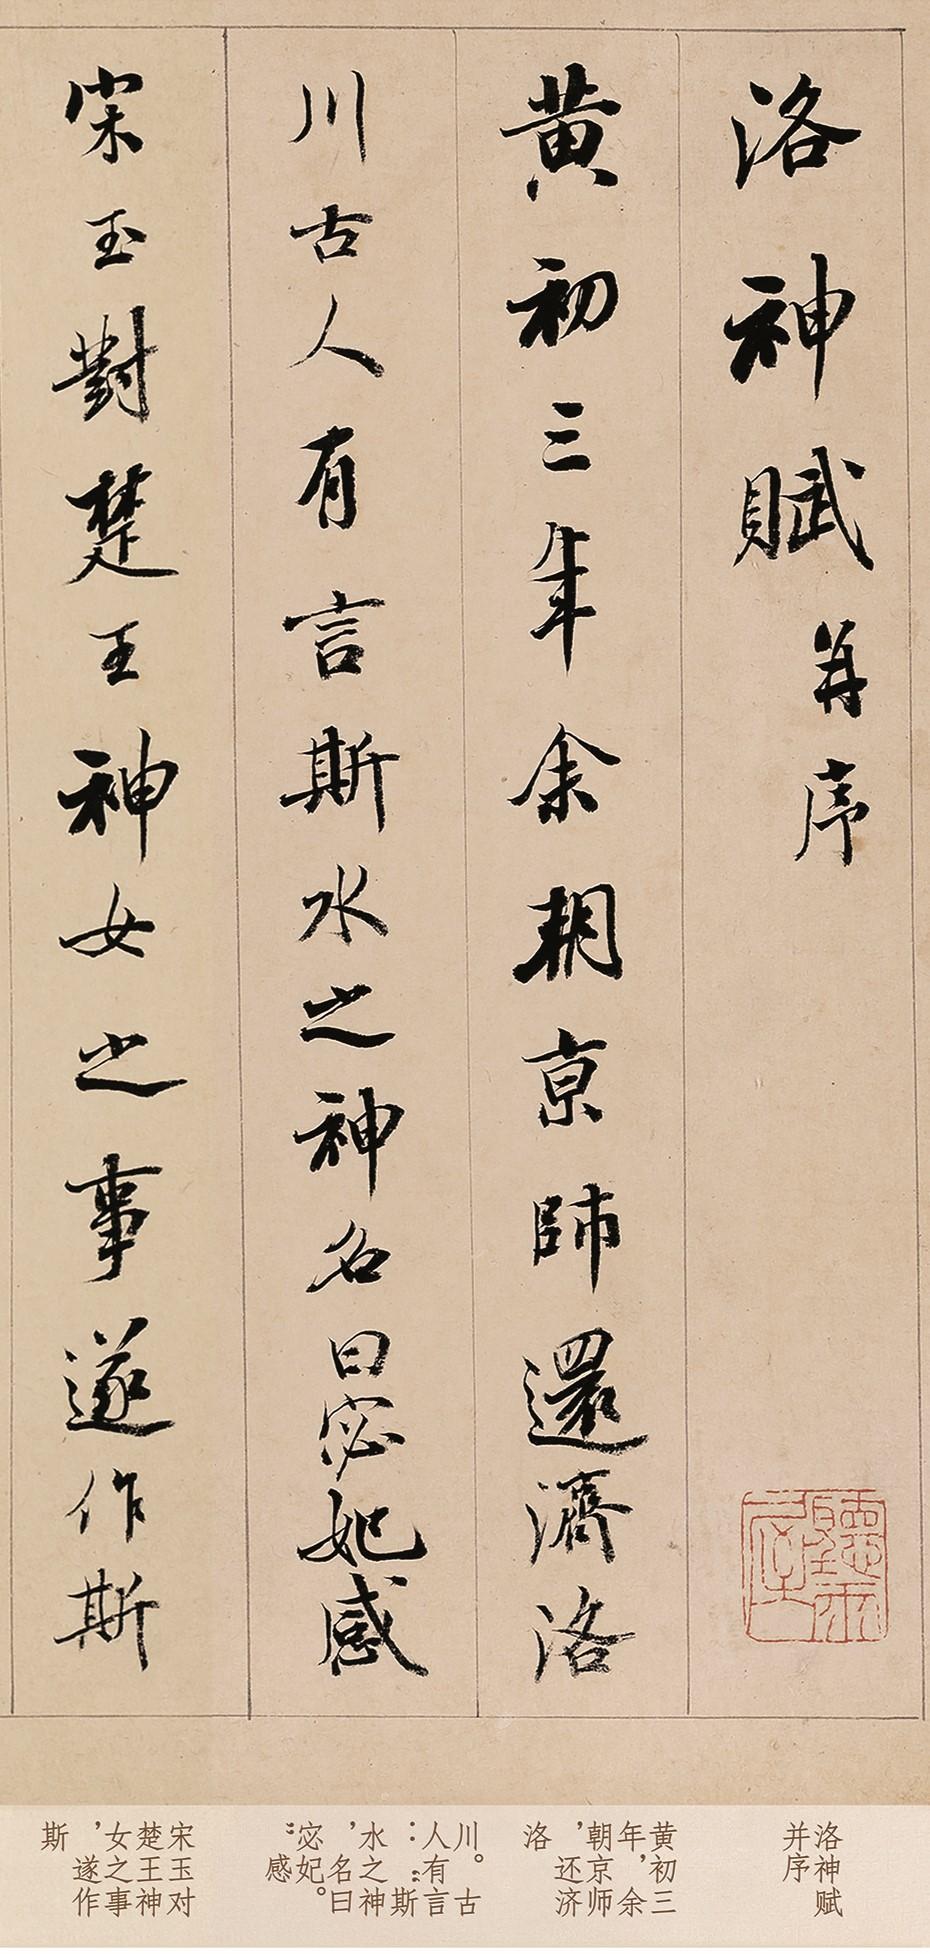 洛神賦并序
黄初三年余朝京師還濟洛
川古人有言斯水之神名曰宓妃感
宋玉對楚王神女之事遂作斯
聽雨
洛神赋
并序
黄初三
年，余
朝京师
，还济
洛
川。古
人有言
：“斯
水之神
，名曰
宓妃。
”感
宋玉对
楚王神
女之事
，遂作
斯